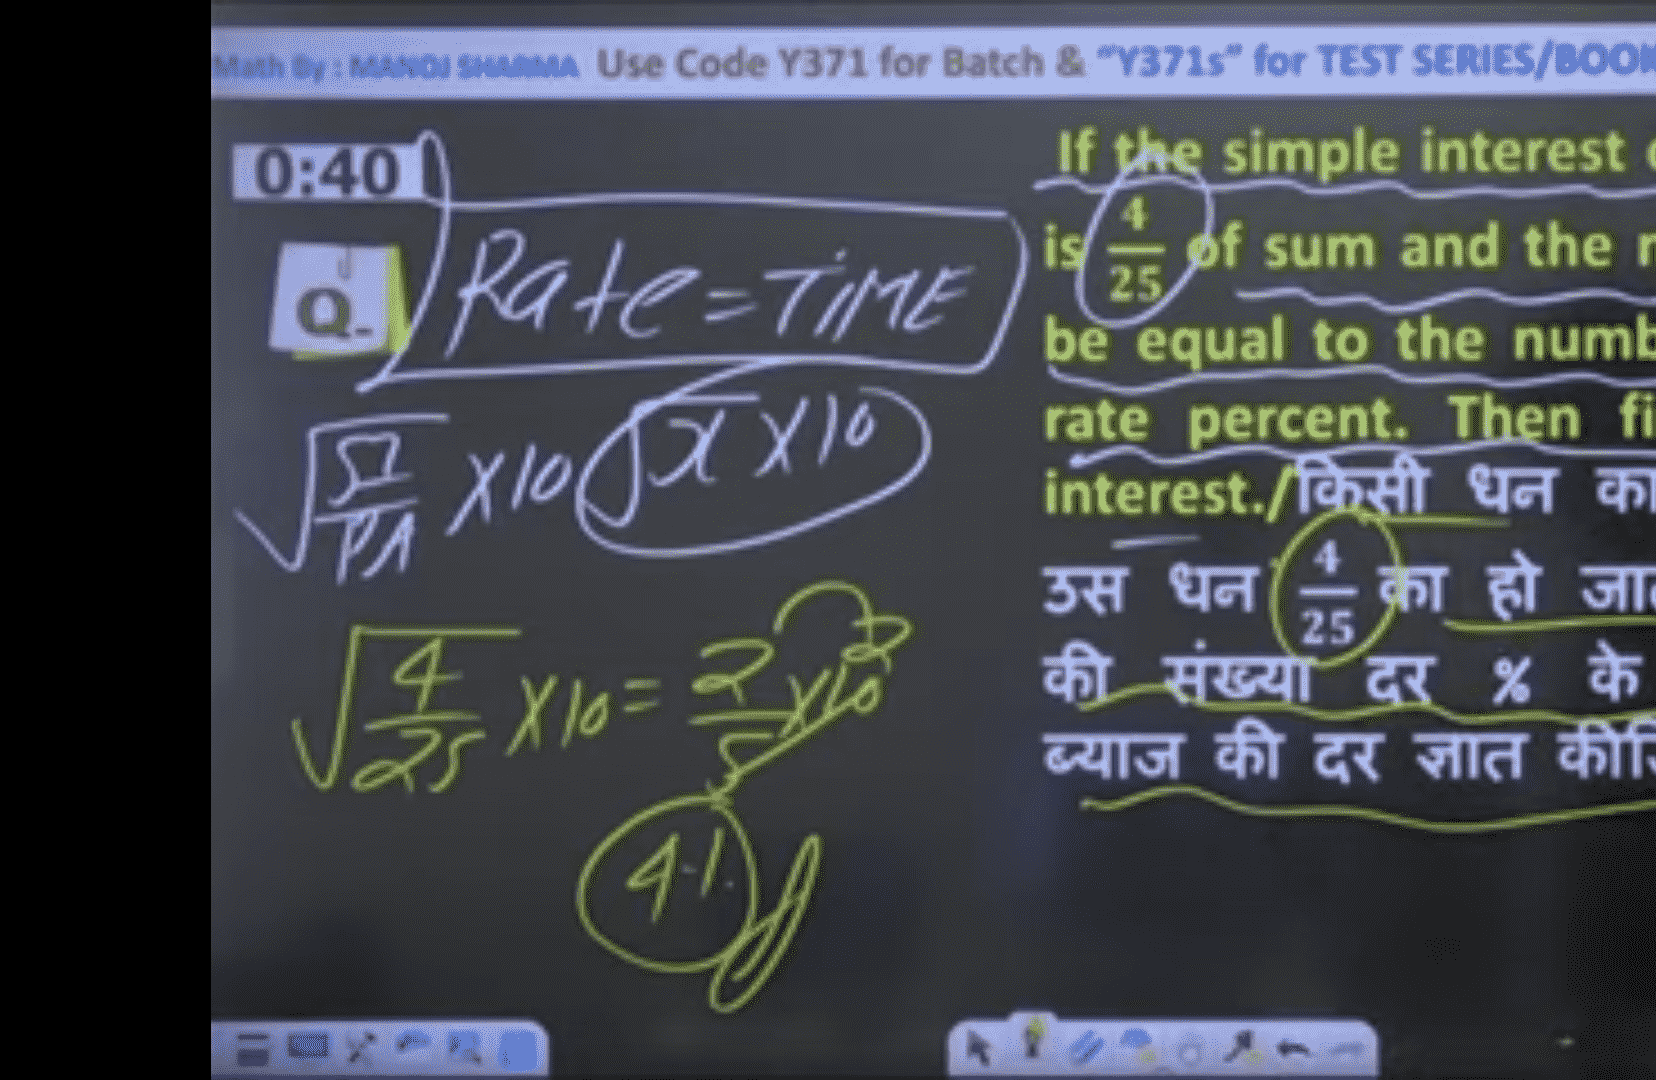 Math By : MANOJ SHARMA Use Code Y371 for Batch & "Y371s" for TEST SERIES/BOOK
0:40
Q.
Rate = TIME
√(SI/PA) X10 √x X10
√(4/25) X10 = 2/5 X10 2
4%
If the simple interest
is 4/25 of sum and the
be equal to the numb
rate percent. Then fi
interest./किसी धन का
उस धन 4/25 का हो जा
की संख्या दर % के
ब्याज की दर ज्ञात कीजि